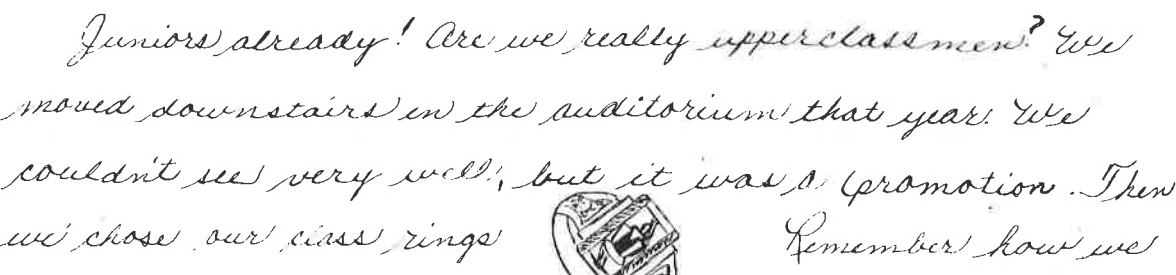 Juniors already! Are we really upperclassmen? We
moved downstairs in the auditorium that year. We
couldn't see very well, but it was a promotion. Then
we chose our class rings Remember how we